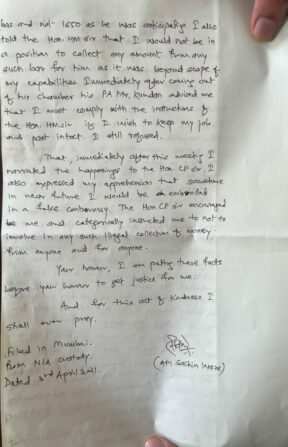 bars and not 1650 as he was anticipating. I also
told the Hon. HM sir that I would not be in
a position to collect any amount from any
such bar for him as it was beyond scope of
my capabilities. Immediately after coming out
of his Chamber his PA Mr. Kundan advised me
that I must comply with the instructions of
the Hon. HM sir if I wish to keep my job
and post intact. I still refused.
That, immediately after this meeting I
narrated the happenings to the Hon. CP sir. I
also expressed my apprehension that sometime
in near future I would be embroiled
in a false controversy. The Hon CP sir encouraged
me and categorically instructed me to not to
involve in any such illegal collection of money
from anyone and for anyone.
Your honour, I am putting these facts
before your honour to get justice for me.
And for this act of kindness I
shall ever pray.
Filed in Mumbai.
from NIA custody.
Dated 3rd April 2021.
(API Sachin Waze)